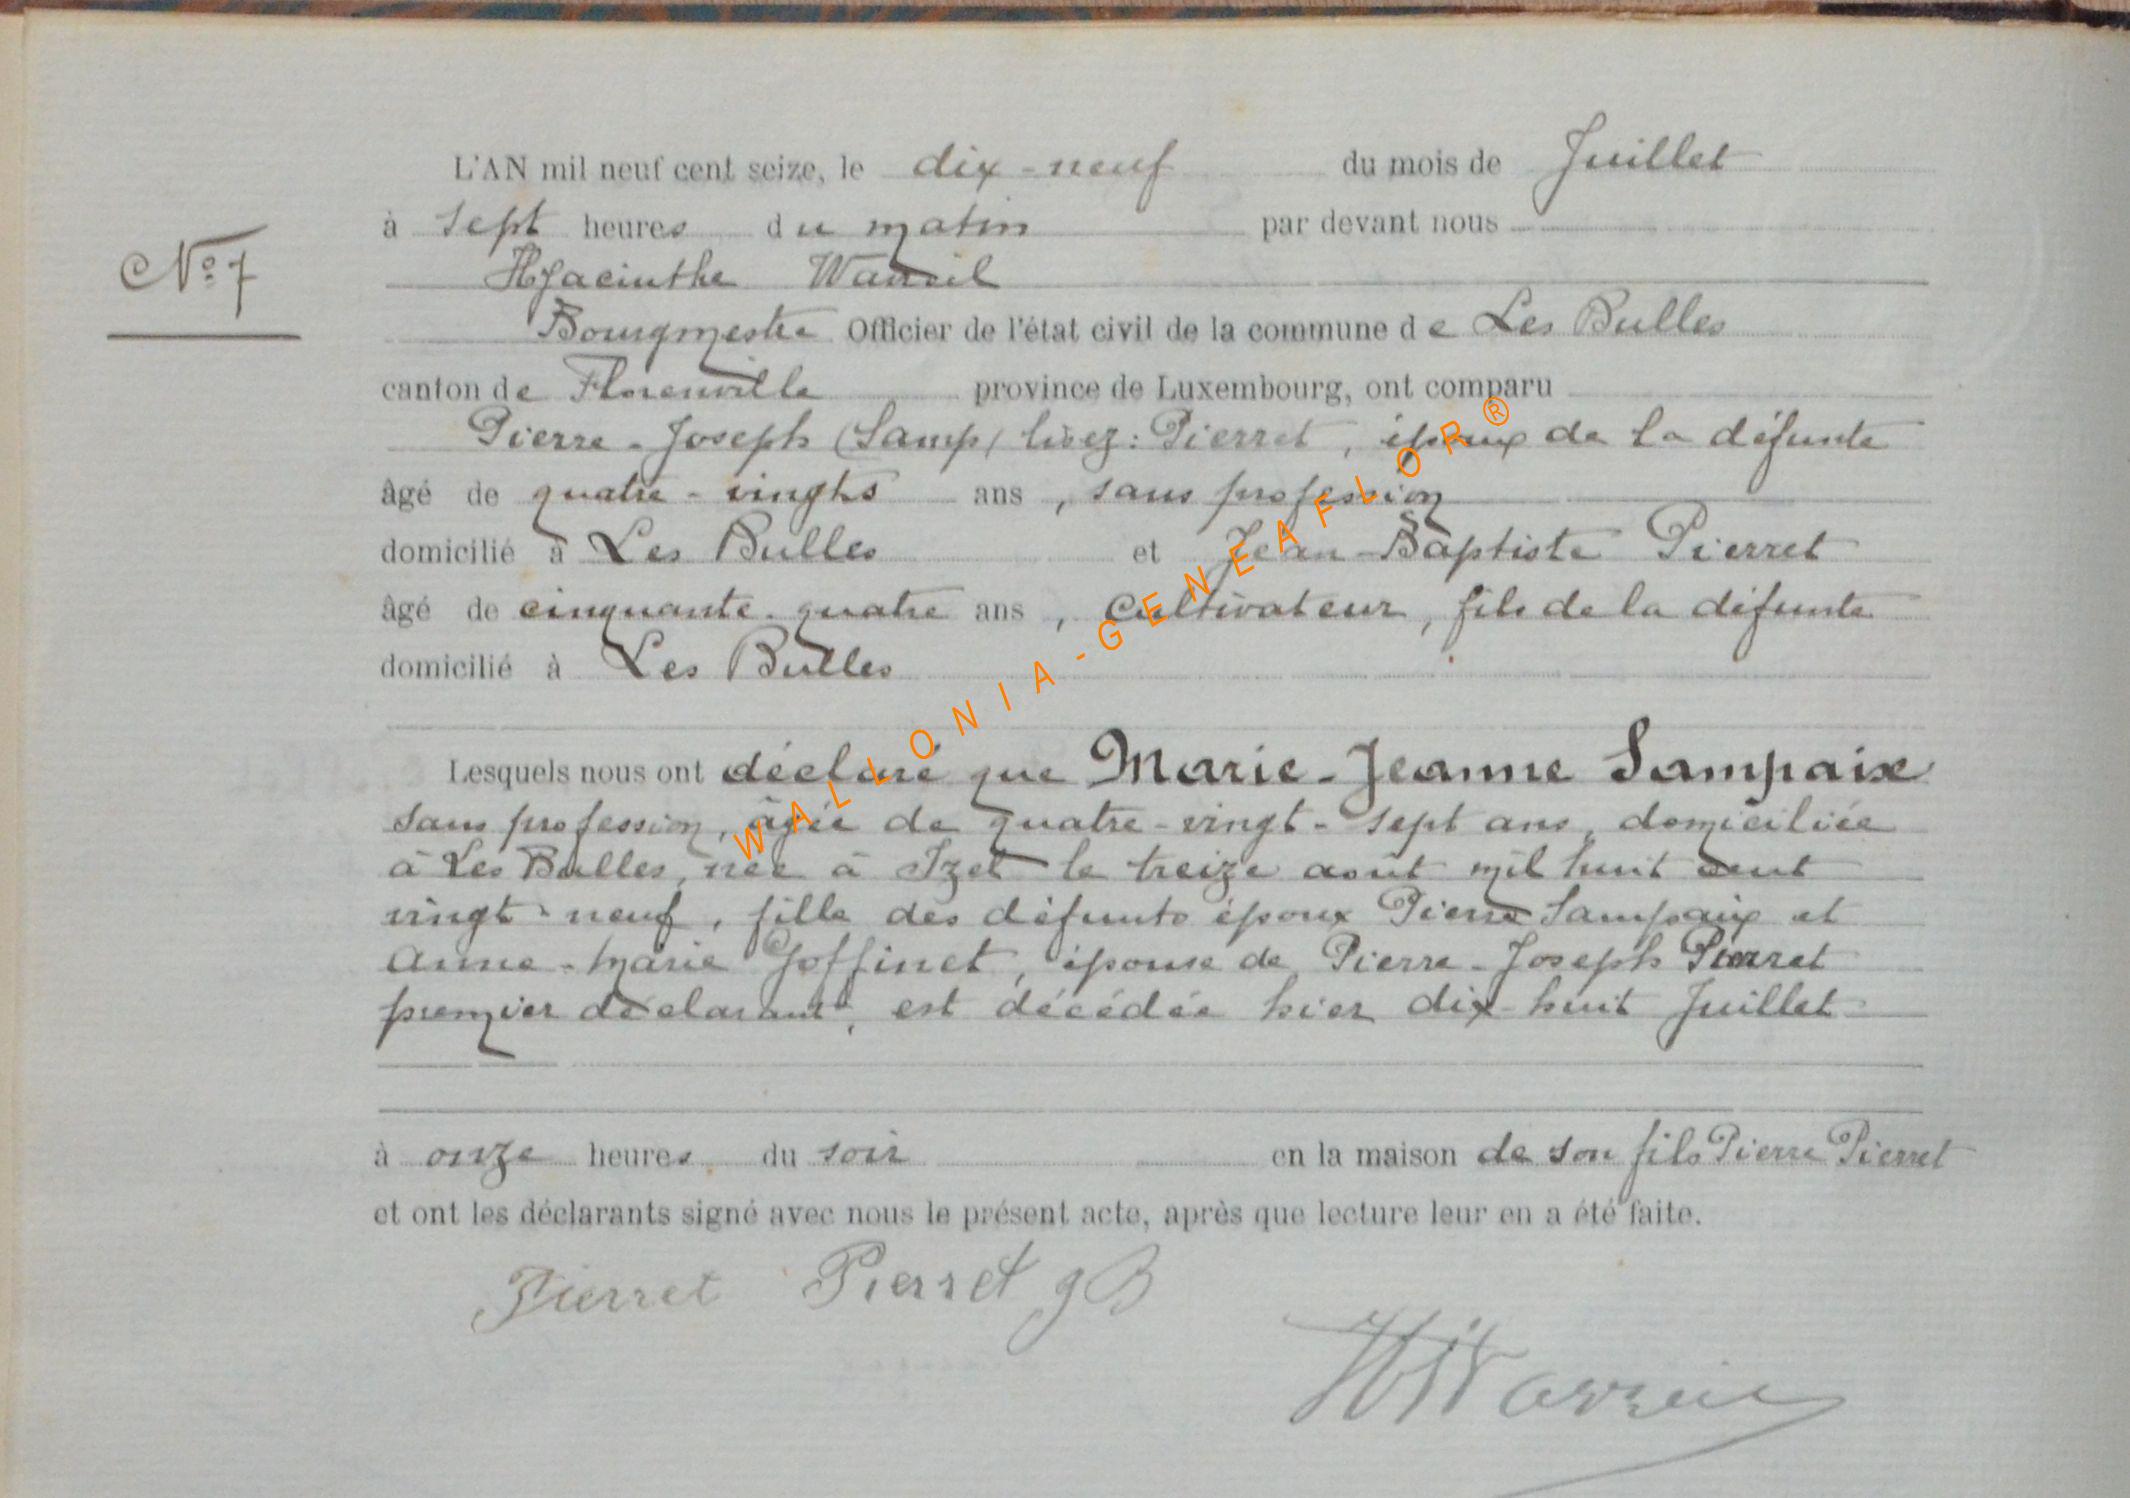 L'AN mil neuf cent seize, le dix-neuf du mois de Juillet
à sept heures du matin par devant nous
N° 7
Hyacinthe
Bourgmestre Officier de l'état civil de la commune de Les Bulles
canton de Florenville province de Luxembourg, ont comparu
Pierre-Joseph (Samp) lisez: Pierret, époux de la défunte
âgé de quatre-vingts ans, sans profession
domicilié à Les Bulles et Jean-Baptiste Pierret
âgé de cinquante-quatre ans, Cultivateur, fils de la défunte
domicilié à Les Bulles
Lesquels nous ont déclaré que Marie-Jeanne Sampaix
sans profession, âgée de quatre-vingt-sept ans, domiciliée
à Les Bulles, née à Izel le treize août mil huit cent
vingt-neuf, fille des défunts époux Pierre Sampaix et
Anne-Marie Goffinet, épouse de Pierre-Joseph Pierret
premier déclarant, est décédée hier dix-huit Juillet
à onze heures du soir en la maison de son fils Pierre Pierret
et ont les déclarants signé avec nous le présent acte, après que lecture leur en a été faite.
Pierret Pierret JB
WALLONIA-GENEAFLOR®